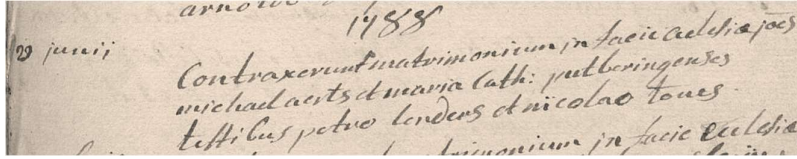 1788
29 junii
Contraxerunt matrimonium in facie Eclesiæ joēs
michael aerts et maria Cath: putberingenses
testibus petro lenders et nicolao toues
in facie Eclesiæ